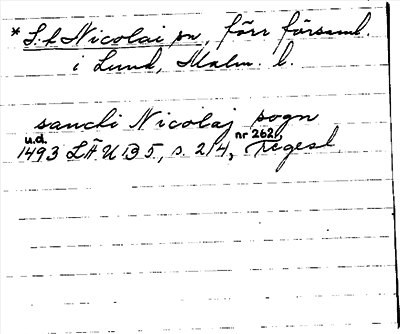 * S:t Nicolai sn, förr församl.
i Lund, Malm. l.
sancti Nicolaj sogn
u.d. nr 262,
1493 LÄU B 5, s. 214, Regest